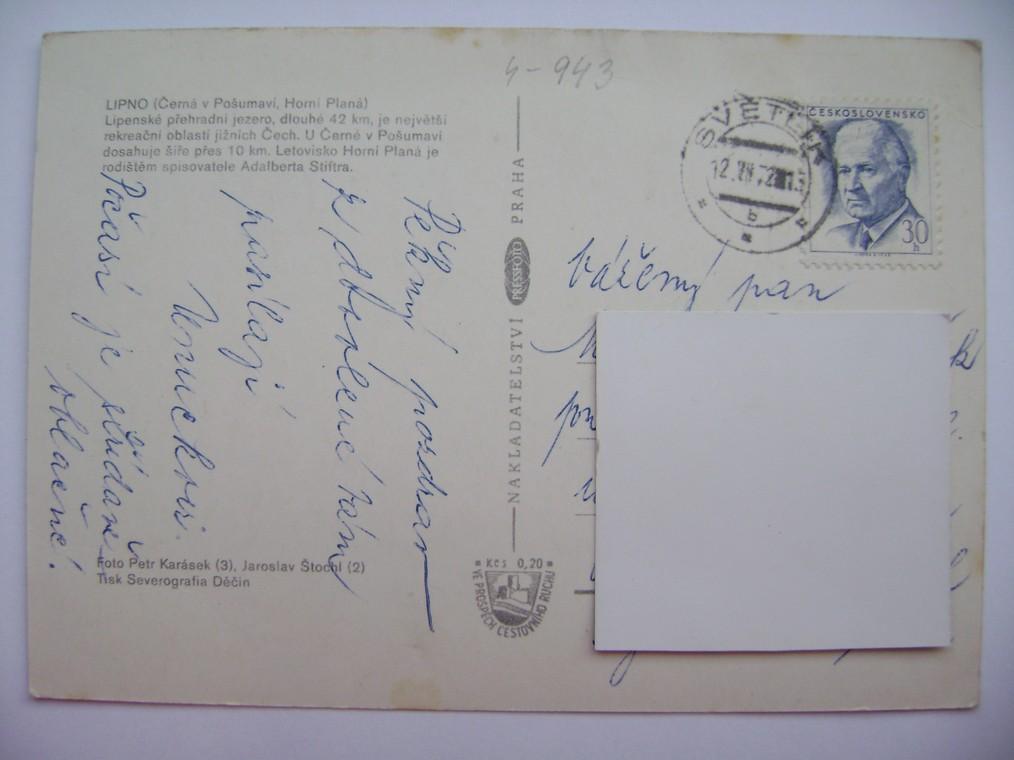 4-943
LIPNO (Černá v Pošumaví, Horní Planá)
Lipenské přehradní jezero, dlouhé 42 km, je největší
rekreační oblastí jižních Čech. U Černé v Pošumaví
dosahuje šíře přes 10 km. Letovisko Horní Planá je
rodištěm spisovatele Adalberta Stiftra.
Pěkný pozdrav
z dovolené Vám
posílají
Počasí je střídavě
oblačné!
Foto Petr Karásek (3), Jaroslav Štochl (2)
Tisk Severografia Děčín
NAKLADATELSTVÍ PRESSFOTO PRAHA
Kčs 0,20
VE PROSPĚCH CESTOVNÍHO RUCHU
ČESKOSLOVENSKO
30 h
b
Vážený pan